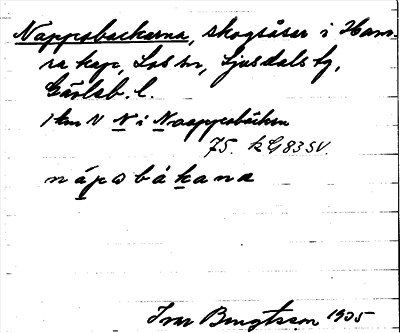 Nappobackarna, skogsåser i Ham-
ra kap, Los sn, Ljusdals tg,
Gävleb. l.
1 km V N i Noappobäcken
75. k G 83 SV.
nápobákana
Ivar Bengtsson 1905